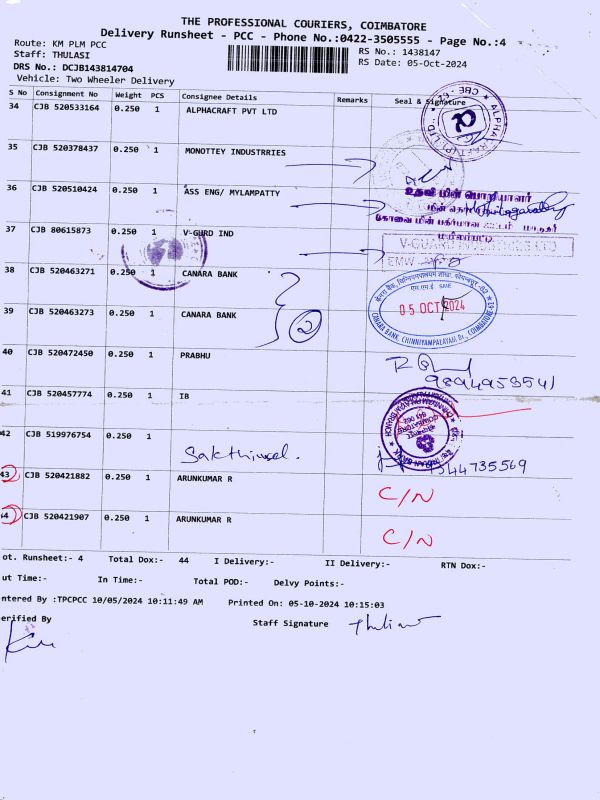 THE PROFESSIONAL COURIERS, COIMBATORE
Delivery Runsheet - PCC - Phone No.:0422-3505555 - Page No.:4
Route: KM PLM PCC
Staff: THULASI
RS No.: 1438147
DRS No.: DCJB143814704
RS Date: 05-Oct-2024
Vehicle: Two Wheeler Delivery
S No Consignment No Weight PCS Consignee Details Remarks Seal & Signature
34 CJB 520533164 0.250 1 ALPHACRAFT PVT LTD
35 CJB 520378437 0.250 1 MONOTTEY INDUSTRRIES
36 CJB 520510424 0.250 1 ASS ENG/ MYLAMPATTY
உதவி மின் பொறியாளர்
37 CJB 80615873 0.250 1 V-GURD IND
38 CJB 520463271 0.250 1 CANARA BANK
05 OCT 2024
CANARA BANK, CHINNIYAMPALAYAM
39 CJB 520463273 0.250 1 CANARA BANK
2
40 CJB 520472450 0.250 1 PRABHU
9894953541
41 CJB 520457774 0.250 1 IB
42 CJB 519976754 0.250 1
Sakthivel.
43 CJB 520421882 0.250 1 ARUNKUMAR R C/N
44 CJB 520421907 0.250 1 ARUNKUMAR R C/N
ot. Runsheet:- 4 Total Dox:- 44 I Delivery:- II Delivery:- RTN Dox:-
ut Time:- In Time:- Total POD:- Delvy Points:-
ntered By :TPCPCC 10/05/2024 10:11:49 AM Printed On: 05-10-2024 10:15:03
erified By Staff Signature